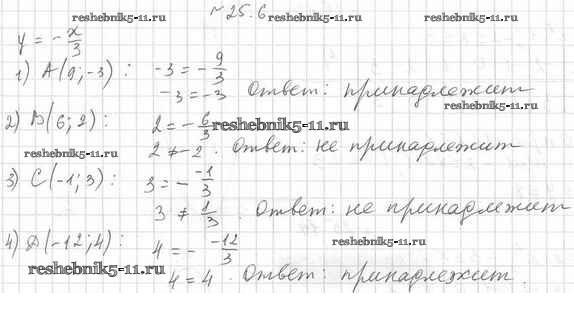 № 25.6
reshebnik5-11.ru reshebnik5-11.ru reshebnik5-11.ru
y = -x/3
1) A(9; -3) : -3 = -9/3
-3 = -3 Ответ: принадлежит
reshebnik5-11.ru
2) B(6; 2) : 2 = -6/3 reshebnik5-11.ru
reshebnik5-11.ru 2 ≠ -2. Ответ: не принадлежит
3) C(-1; 3) : 3 = - -1/3
3 ≠ 1/3. Ответ: не принадлежит
4) D(-12; 4) : 4 = - -12/3 reshebnik5-11.ru
reshebnik5-11.ru 4 = 4. Ответ: принадлежит.